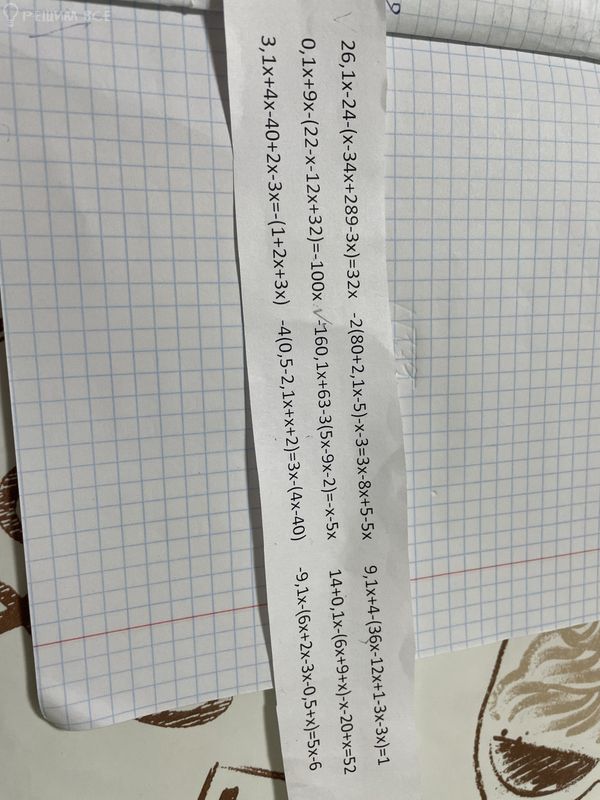 РЕШИМ ВСЕ
26,1x-24-(x-34x+289-3x)=32x -2(80+2,1x-5)-x-3=3x-8x+5-5x 9,1x+4-(36x-12x+1-3x-3x)=1
0,1x+9x-(22-x-12x+32)=-100x -160,1x+63-3(5x-9x-2)=-x-5x 14+0,1x-(6x+9+x)-x-20+x=52
3,1x+4x-40+2x-3x=-(1+2x+3x) -4(0,5-2,1x+x+2)=3x-(4x-40) -9,1x-(6x+2x-3x-0,5+x)=5x-6